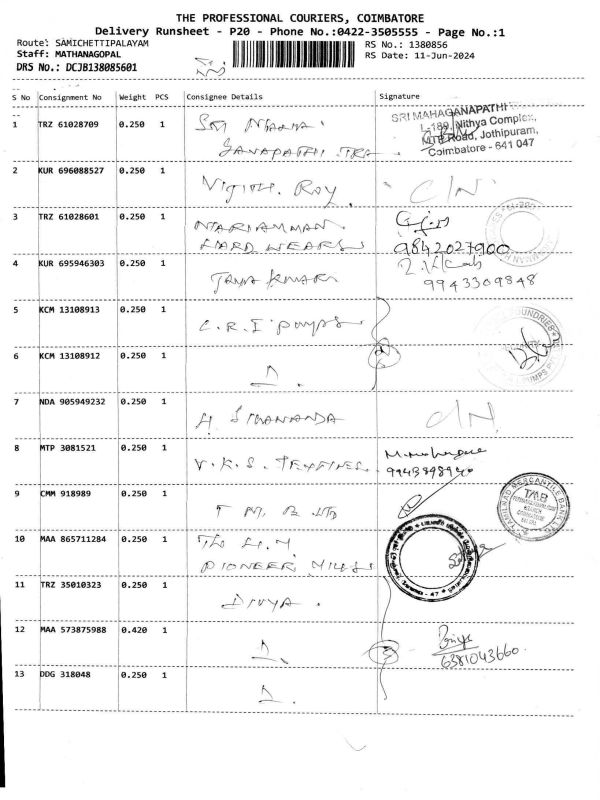 THE PROFESSIONAL COURIERS, COIMBATORE
Delivery Runsheet - P20 - Phone No.:0422-3505555 - Page No.:1
Route: SAMICHETTIPALAYAM
Staff: MATHANAGOPAL
DRS No.: DCJB138085601
RS No.: 1380856
RS Date: 11-Jun-2024
S No Consignment No Weight PCS Consignee Details Signature
1 TRZ 61028709 0.250 1 Sri Maha
Ganapathi TRA
SRI MAHAGANAPATHI
L-189, Nithya Complex,
MTP Road, Jothipuram,
Coimbatore - 641 047
2 KUR 696088527 0.250 1 Vijith. Roy " C/N "
3 TRZ 61028601 0.250 1 MARIAMMAN
HARD WEARS 9842027900
4 KUR 695946303 0.250 1 Jaya Kumar
9943309848
5 KCM 13108913 0.250 1 C.R.I Pumps
6 KCM 13108912 0.250 1 D. 2
7 NDA 905949232 0.250 1 H SIVANANDA C/N
8 MTP 3081521 0.250 1 V.K.S. TEXTILES
9943898940
9 CMM 918989 0.250 1 T M B LTD
TAMILNAD MERCANTILE BANK LTD
TMB
10 MAA 865711284 0.250 1 The L.M
PIONEER MILLS
11 TRZ 35010323 0.250 1 DIVYA.
12 MAA 573875988 0.420 1 D. 3 Priya
6381043660
13 DDG 318048 0.250 1 D.